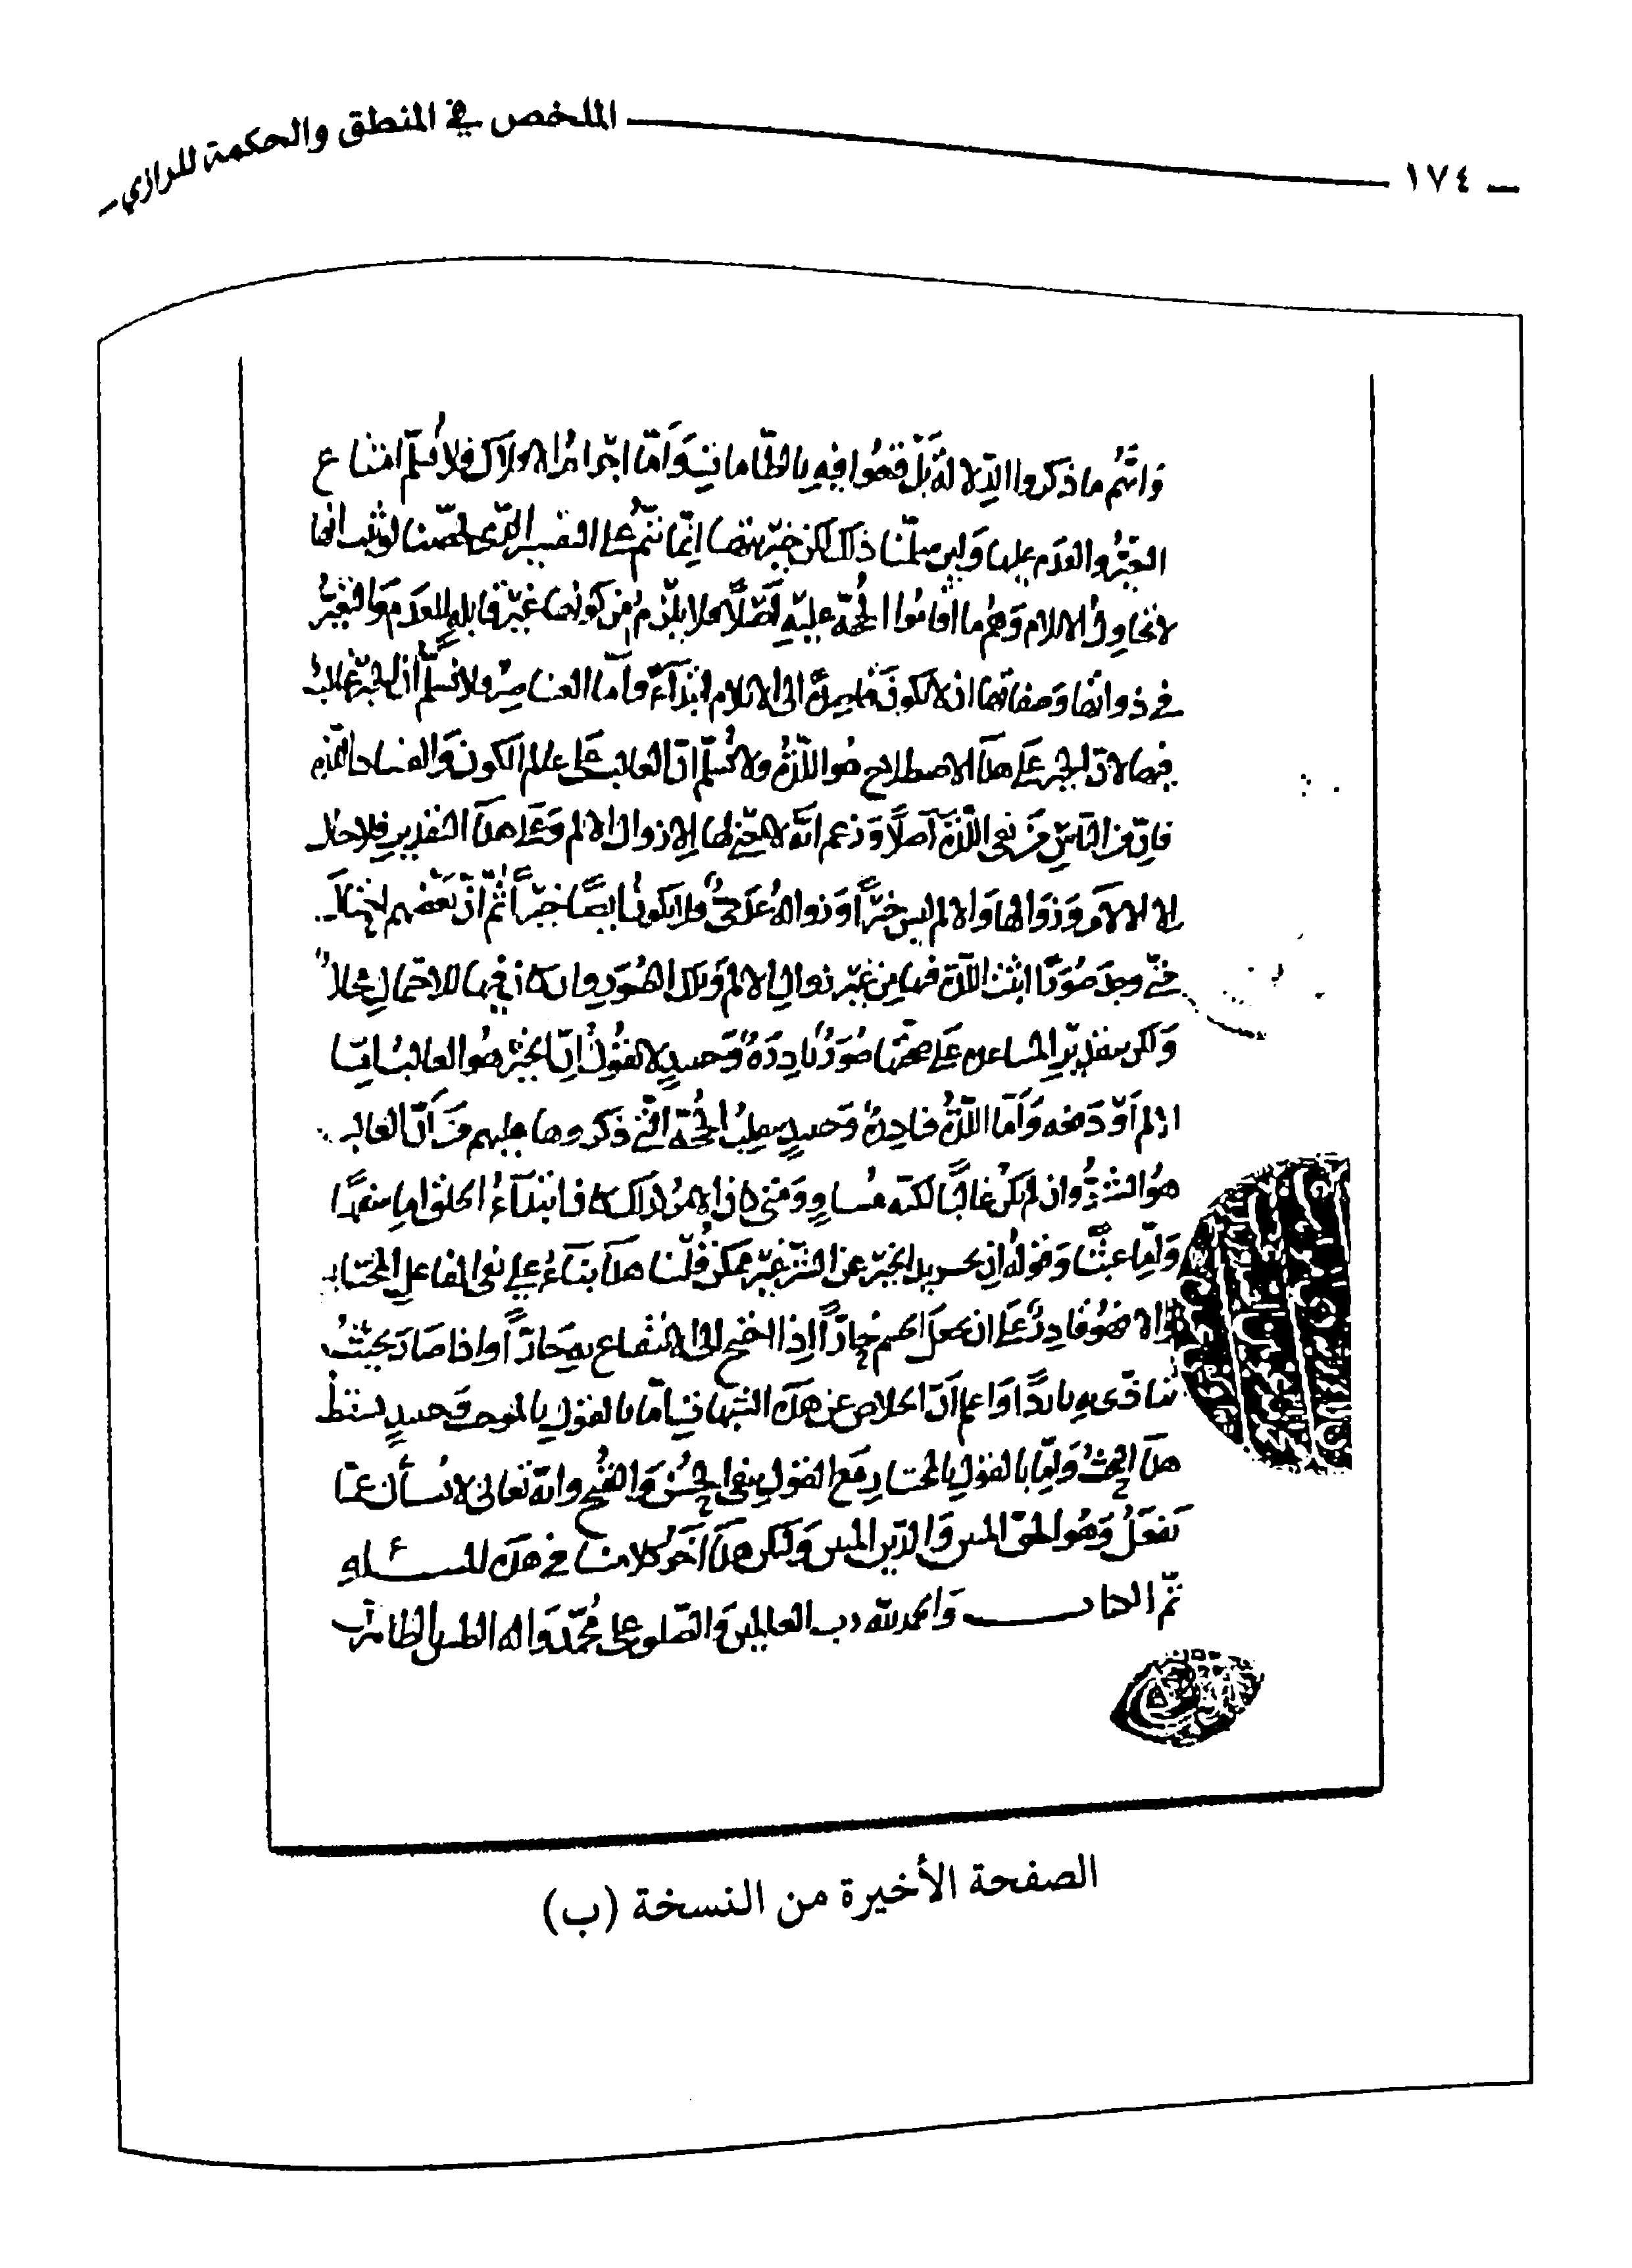 الملخص في المنطق والحكمة للرازي
١٧٤
وانتم ما ذكروا الدلالة بل قنعوا فيه بالطامات واما اجرام الافلاك فلا نسلم امتناع
التغير والعدم عليها ولين سلمنا ذلك لكن خيريتها انما تتم على التفسير الذى لخصنا لو ثبت انها
لا تحاول الالام وهم ما اقاموا الحجة عليه اصلا فلا يلزم من كونها غير قابلة للعدم والتغير
في ذواتها وصفاتها ان لا تكون قاصدة الى الالام ابتداء واما العناصر فلا نسلم ان الخير غالب
فيها لان الخير على هذا الاصطلاح هو اللذة ولا نسلم ان الغالب على عالم الكون والفساد اللذة
فان من الناس من نفى اللذة اصلا وزعم انه لا معنى لها الا زوال الالم وعلى هذا التقدير فلا حاصل
الا الالام وزوالها والالم ليس خيرا وزواله عدمى فلا يكون ايضا خيرا ثم ان بعضهم
حتى وجد صورا اثبت اللذة فيها من غير زوال الالم وتلك الصور وان كان فيها للاحتمال مجال
ولكن بتقدير المساعدة على صحتها صور نادرة وحينيذ لا نقول ان الخير هو الغالب
الالم او دفعه واما اللذة فنادرة وحينيذ ينقلب الحجة التى ذكروها عليهم من ان الغالب
هو الشر وان لم يكن غالبا لكنه مساو ومتى كان الامر كذلك كان ابتداء الخلق اما سفها
واما عبثا وقوله ان تجريد الخير عن الشر غير ممكن قلنا هذا بناء على نفى الفاعل المختار
والا فهو قادر على ان يجعل الجسم حارا اذا احتيج الى الانتفاع به حارا واذا صار بحيث
يتاذى به باردا واعلم ان الخلاص عن هذه الشبهات اما بالقول بالموجب وحينيذ يسقط
هذا البحث واما بالقول بالمختار مع القول بنفى الحسن والقبح وانه تعالى لا يسأل عما
يفعل وهو الحق المبين والدين المتين وليكن هذا اخر كلامنا في هذه المسئلة
تم الكتاب والحمد لله رب العالمين والصلوة على محمد واله الطيبين الطاهرين
الصفحة الأخيرة من النسخة (ب)